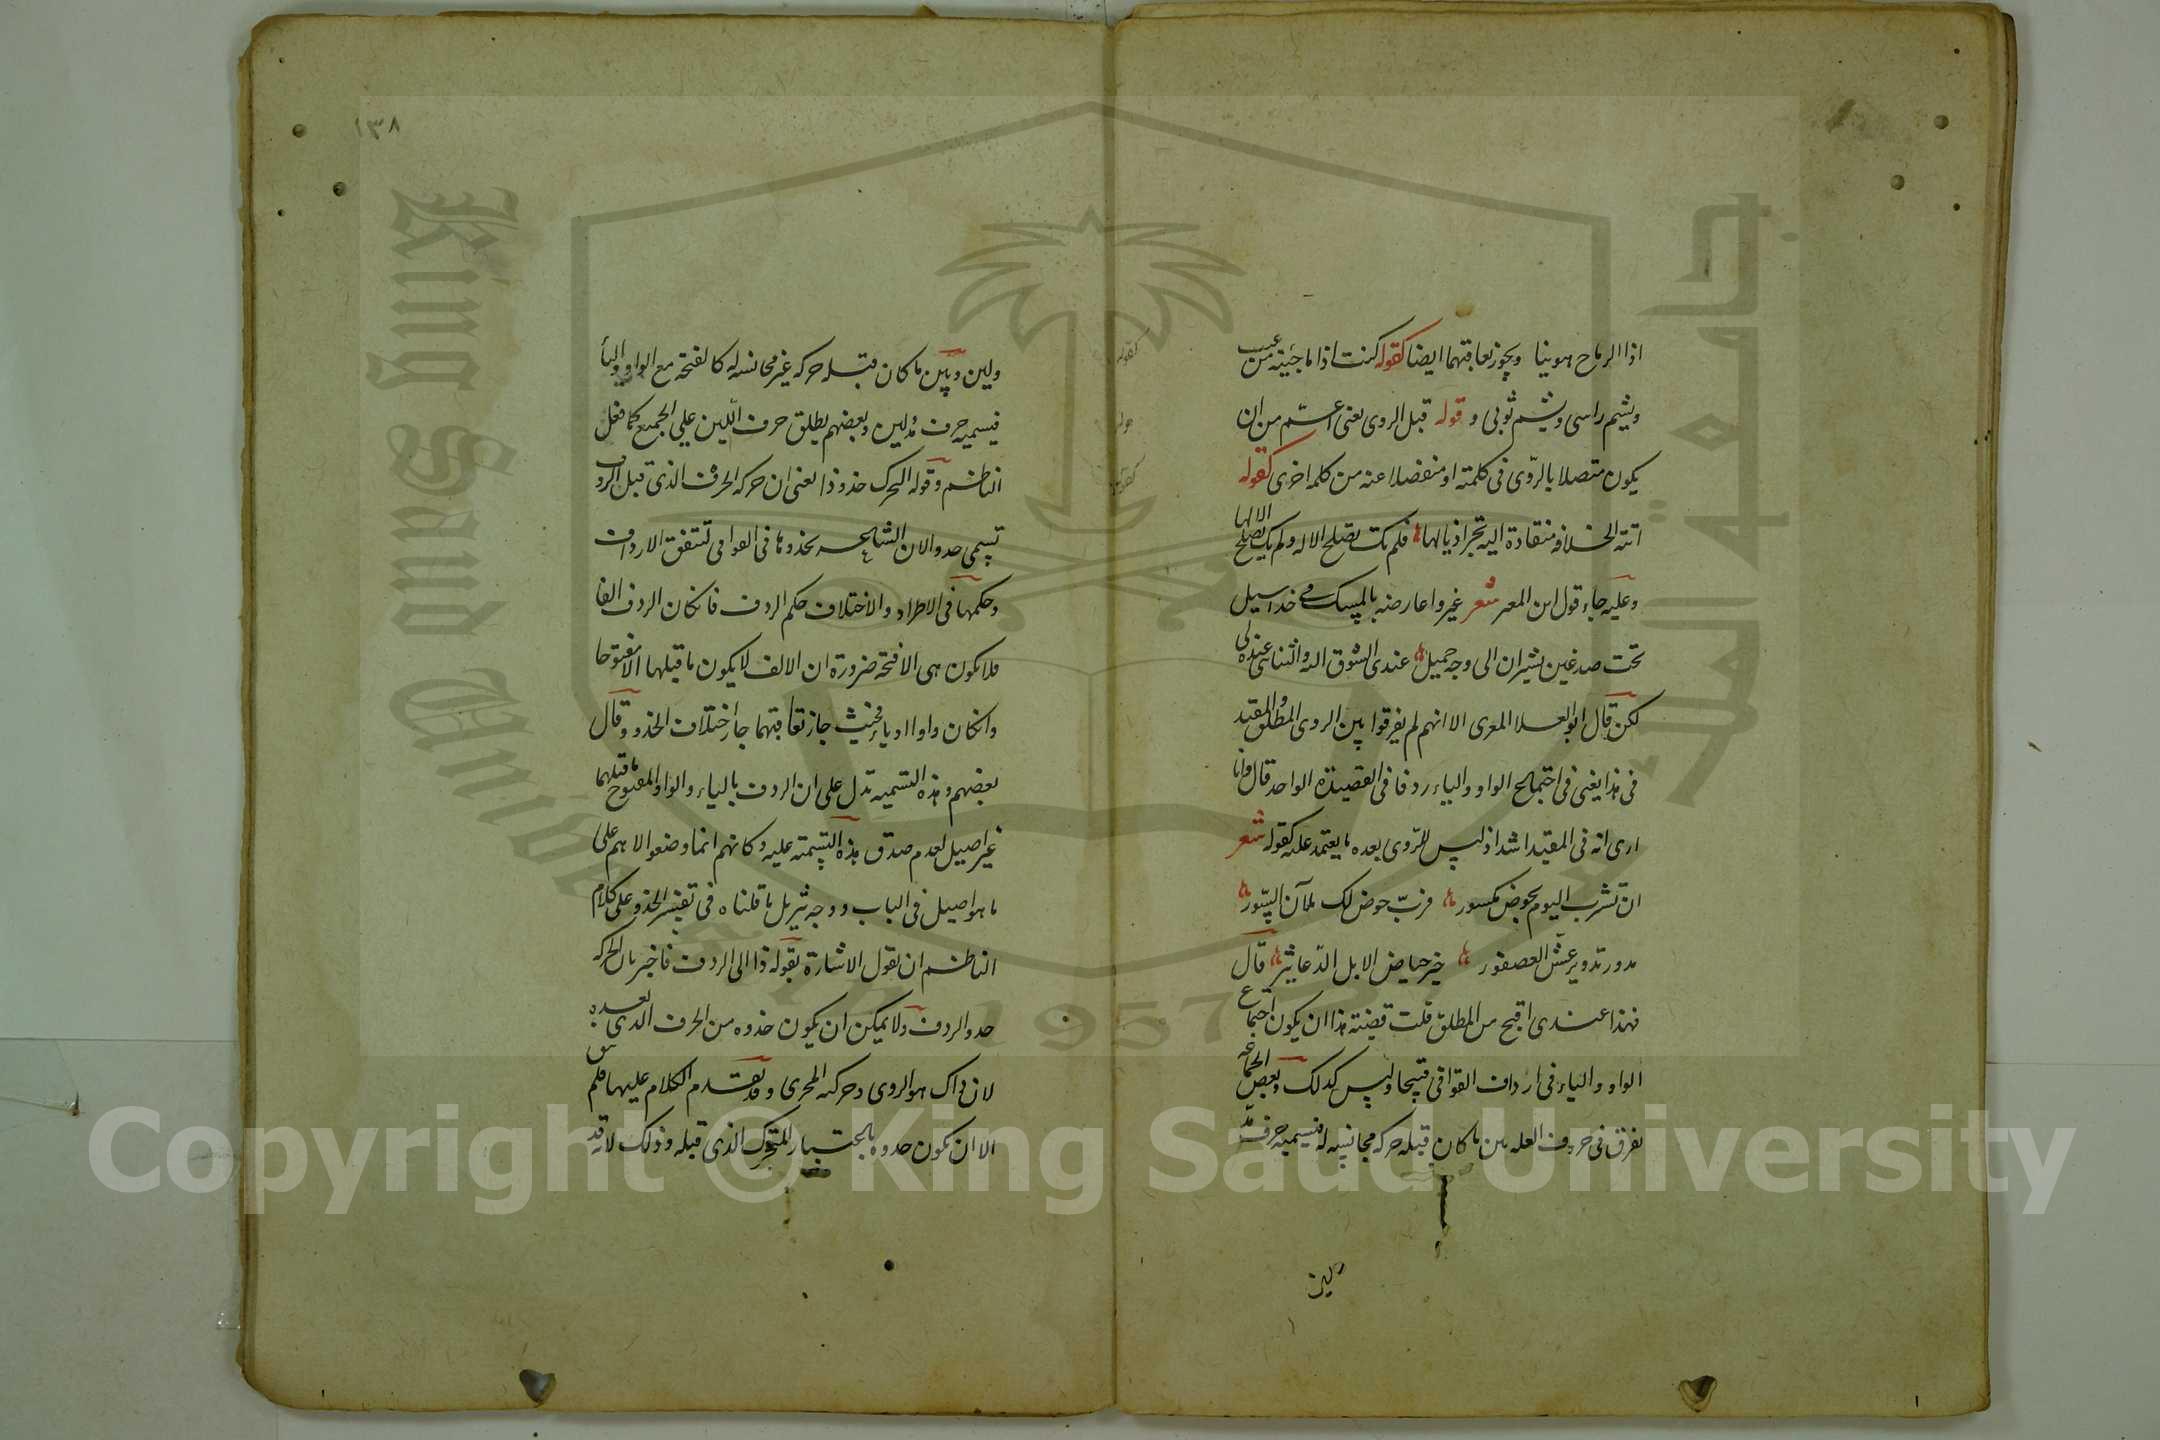 اذا الرماح هوينا ويجوز تعاقبهما ايضا كقوله كنت اذا ما جئته من غيب
ويشم راسي ويشم ثوبي و قوله قبل الروي يعني اعم من ان
يكون متصلا بالروي في كلمته او منفصلا عنه من كلمه اخرى كقوله
اتته الخلافه منقادة اليه تجر اذيالها فلم تك تصلح الا له ولم يك يصلح الا لها
وعليه جاء قول ابن المعتز شعر غيروا عارضه بالمسك في خد اسيل
تحت صدغين يشيران الى وجه جميل عندي الشوق اليه والتناسي عنده لي
لكن قال ابو العلا المعري الا انهم لم يفرقوا بين الروي المطلق والمقيد
في هذا يعني في اجتماع الواو والياء ردفا في القصيدة الواحد قال وانا
ارى انه في المقيد اشد اذ ليس للروي بعده ما يعتمد عليه كقوله شعر
ان تشرب اليوم بحوض مكسور فرب حوض لك ملآن السور
مدور تدوير عش العصفور خير حياض الابل الدعاثير قال
فهذا عندي اقبح من المطلق قلت قضية هذا ان يكون اجتماع
الواو والياء في ارداف القوافي قبيحا وليس كذلك وبعض الجماعه
يفرق في حروف العله بين ما كان قبله حركه مجانسه له فيسميه حرف مد
ولين
١٣٨
ولين وبين ما كان قبله حركه غير مجانسه له كالفتحه مع الواو والياء
فيسميه حرف مد لين وبعضهم يطلق حرف اللين على الجميع كما فعل
الناظم وقوله التحرك حذو ذا يعني ان حركه الحرف الذي قبل الردف
تسمى حدوا لان الشاعر يحذوها في القوافي لتتفق الارداف
وحكمها في الاطراد والاختلاف حكم الردف فان كان الردف الفا
فلا تكون هي الا فتحه ضرورة ان الالف لا يكون ما قبلها الا مفتوحا
وان كان واوا او ياء فحيث جاز تعاقبهما جاز اختلاف الحذو وقال
بعضهم وهذه التسميه تدل على ان الردف بالياء والواو المفتوح ما قبلهما
غير اصيل لعدم صدق هذه التسمته عليه وكانهم انما وضعوا الاهم على
ما هو اصيل في الباب ووجه تنزيل ما قلناه في تفسير الحذو على كلام
الناظم ان نقول الاشارة بقوله ذا الى الردف فاخبر بان الحركه
حدو الردف ولا يمكن ان يكون حذوه من الحرف الذي بعده
لان ذاك هو الروي وحركته المجرى وقد تقدم الكلام عليها فلم يبق
الا ان تكون حدوه باعتبار المتحرك الذي قبله وذلك لانه قد